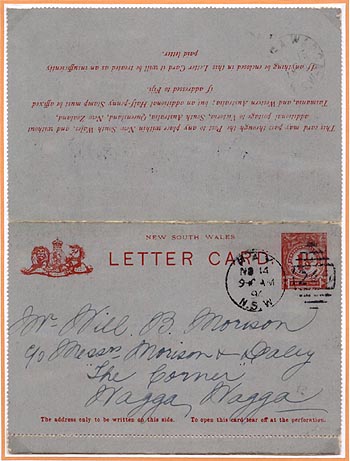 This card may pass through the Post to any place within New South Wales, and without
additional postage to Victoria, South Australia, Queensland, New Zealand,
Tasmania, and Western Australia; but an additional Half-penny Stamp must be affixed
if addressed to Fiji.
If anything be enclosed in this Letter Card it will be treated as an insufficiently
paid letter.
NEW SOUTH WALES
LETTER CARD
NO 14
9-0 AM
N.S.W
Mr Will. B. Morison
c/o Messrs Morison & Daley
"The Corner"
Wagga Wagga
The address only to be written on this side. To open this card tear off at the perforation.